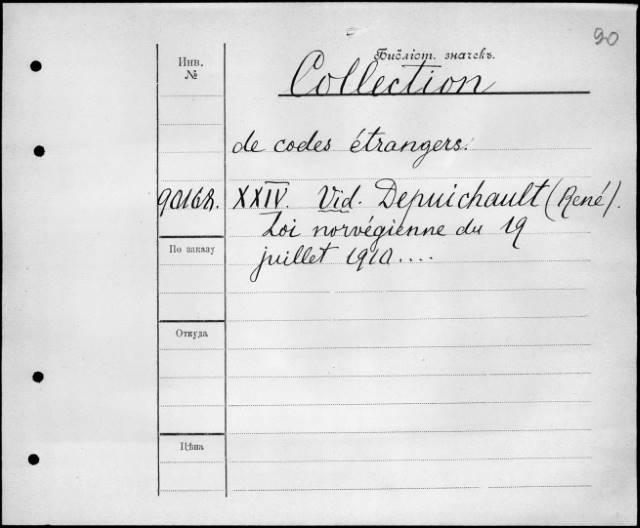 90
Инв.
№
Библіот. значекъ.
Collection
de codes étrangers.
XXIV. Vid. Depuichault (René).
Loi norvégienne du 19
juillet 1910....
По заказу
Откуда
Цѣна